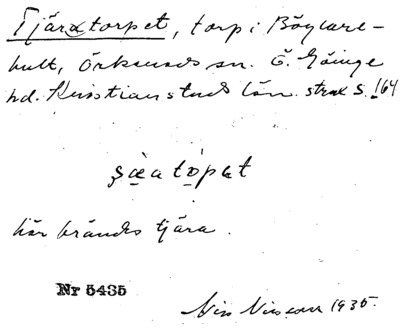 Tjäratorpet, torp i Böglare-
hult, Örkeneds sn. Ö. Göinge
hd. Kristianstads län. strax S. 164
här brändes tjära.
Nr 5435
1935.